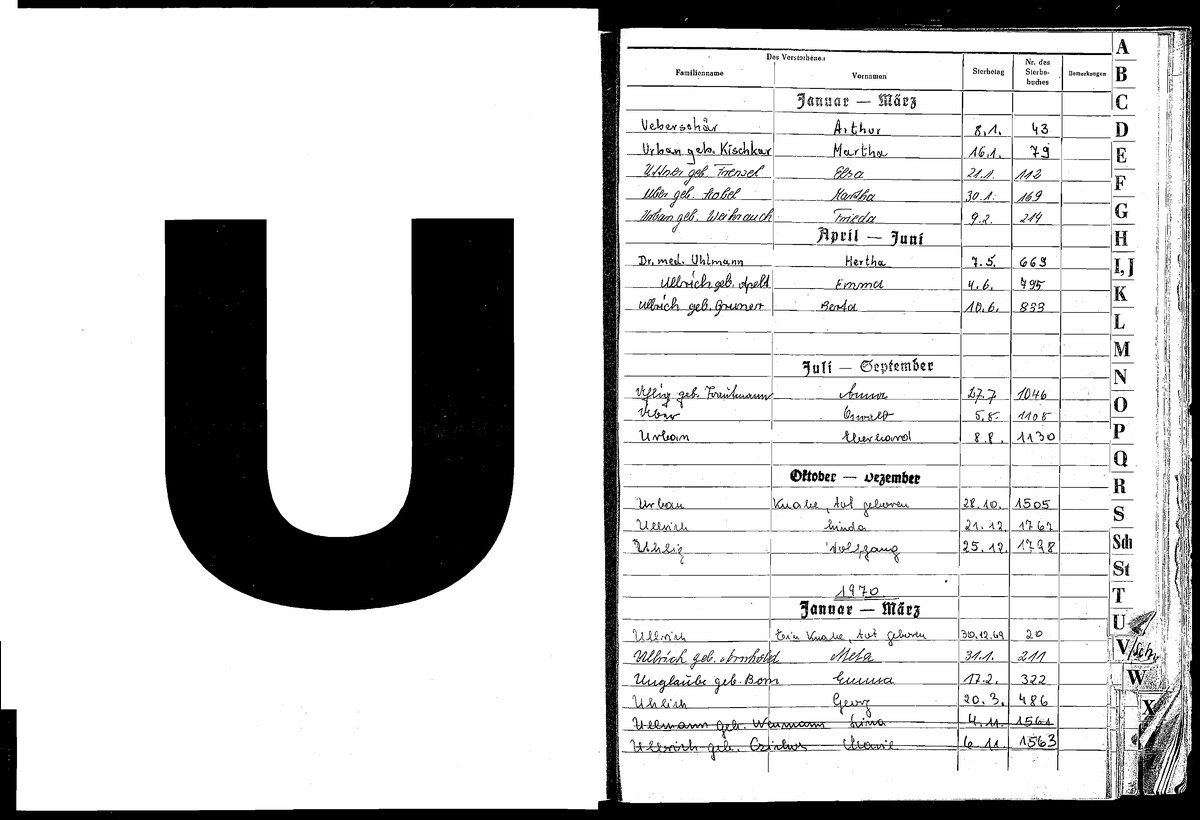 U
Des Verstorbenen
Familienname Vornamen Sterbetag Nr. des Sterbebuches Bemerkungen
Januar — März
Ueberschär Arthur 8.1. 43
Urban geb. Kischkar Martha 16.1. 79
Uttner geb. Frenzel Elsa 21.1. 112
Uber geb. Martha 30.1. 169
Urban geb. Weihrauch Frieda 9.2. 214
April — Juni
Dr. med. Uhlmann Hertha 7.5. 669
Ullrich geb. Apelt Emma 4.6. 795
Ullrich geb. Gruner Berta 10.6. 833
Juli — September
Uhlig geb. Trautmann Anna 27.7 1046
Oswald 5.8. 1105
Urban Eberhard 8.8. 1130
Oktober — Dezember
Urban Knabe, tot geboren 28.10. 1505
Ullrich Linda 21.12. 1767
Uhlig Wolfgang 25.12. 1798
1970
Januar — März
Ullrich Ein Knabe, tot geboren 30.12.69 20
Ullrich geb. Arnhold Meta 31.1. 211
Unglaube geb. Born Emma 17.2. 322
Uhlich Georg 20.3. 486
Ullmann geb. Lina 4.11. 1561
Ullrich geb. Marie 6.11. 1563
A
B
C
D
E
F
G
H
I, J
K
L
M
N
O
P
Q
R
S
Sch
St
T
U
V
W
X